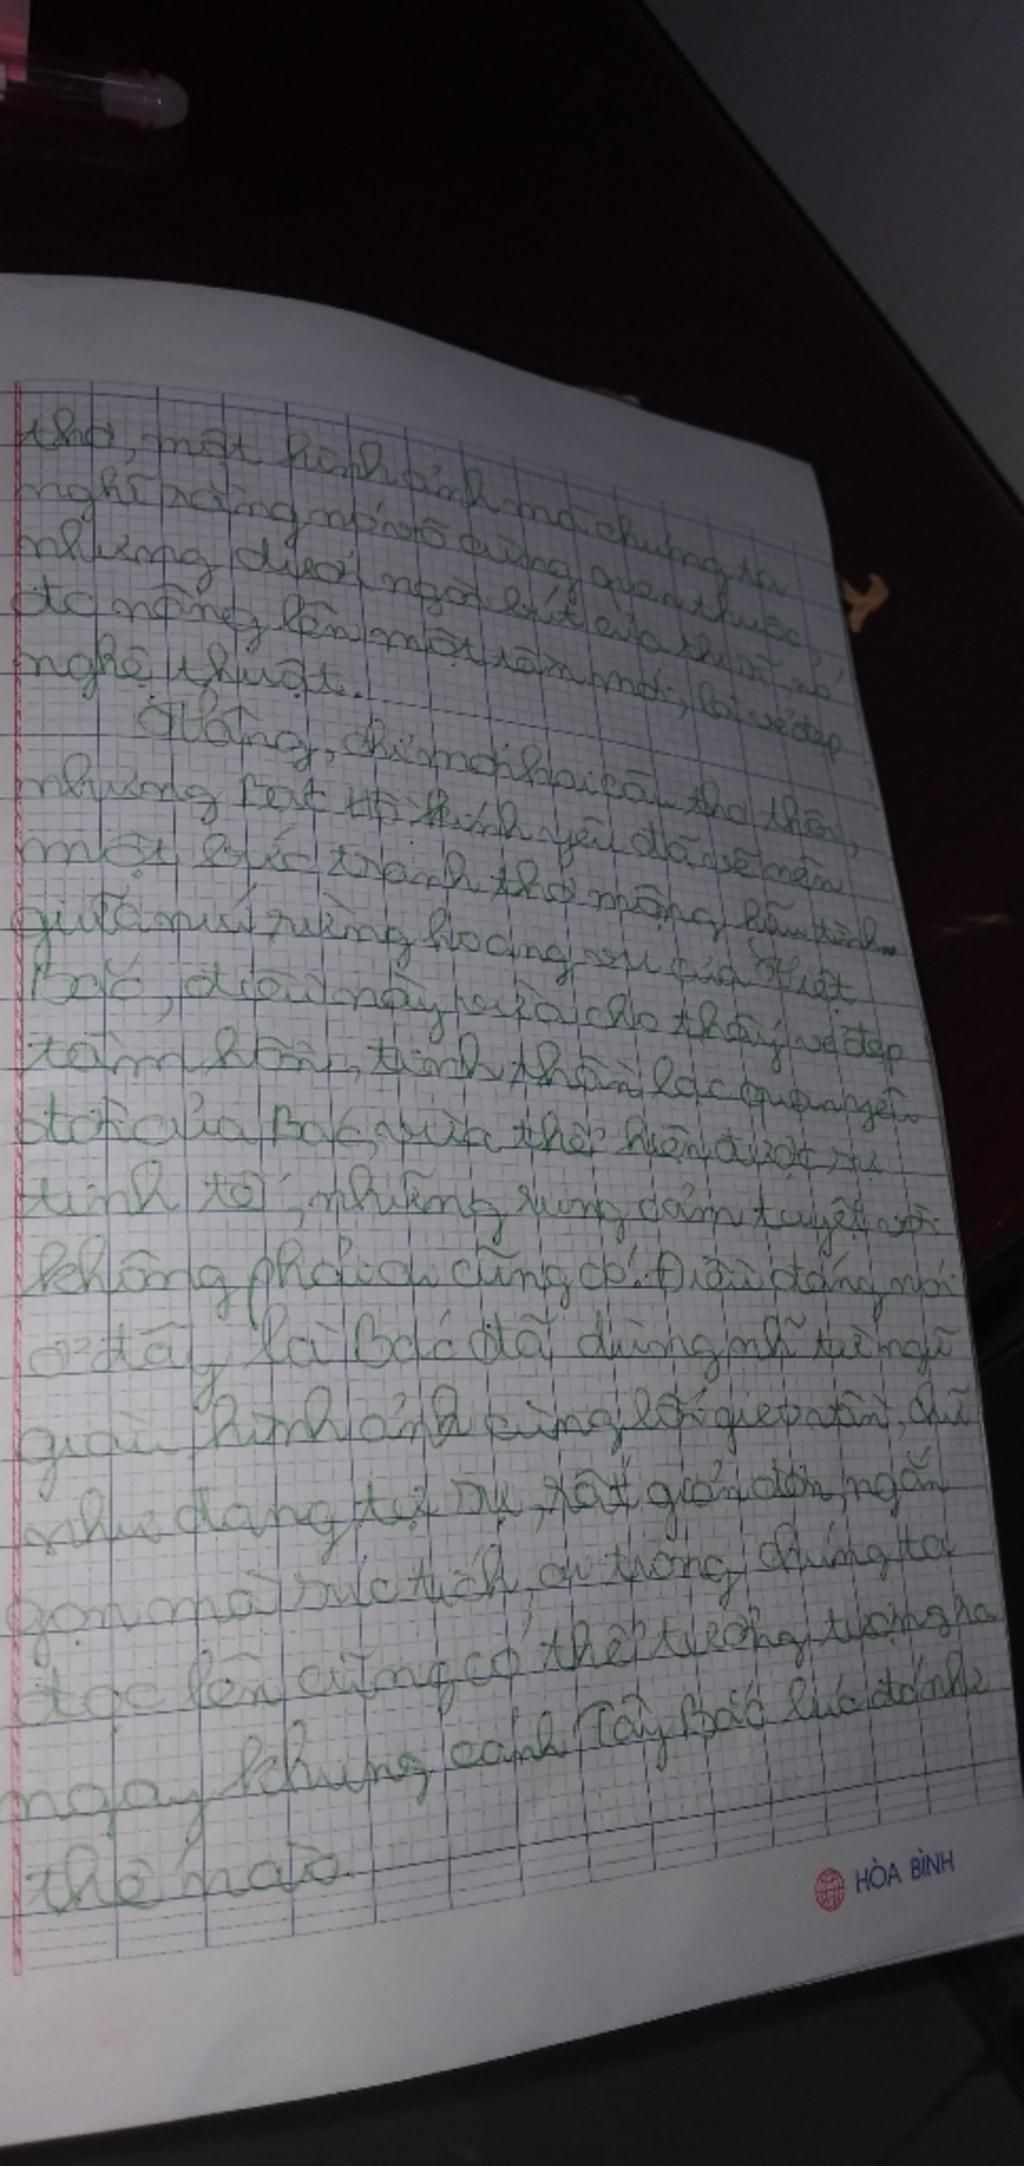 thơ, một hình ảnh mà chúng ta
nghĩ rằng nó vô cùng quen thuộc,
nhưng dưới ngòi bút của thi sĩ, nó
được nâng lên một tầm mới, là vẻ đẹp
nghệ thuật.
Vâng, chỉ mới hai câu thơ thôi,
nhưng Bác Hồ kính yêu đã vẽ nên
một bức tranh thơ mộng hữu tình
giữa núi rừng hoang vu của Việt
Bắc, điều này vừa cho thấy vẻ đẹp
tâm hồn, tinh thần lạc quan yêu
đời của Bác, vừa thể hiện được sự
tinh tế, những rung cảm tuyệt vời
không phải ai cũng có. Điều đáng nói
ở đây là Bác đã dùng những từ ngữ
giàu hình ảnh cùng lối gieo vần, chữ
như đang tự sự, rất giản đơn, ngắn
gọn mà súc tích, chúng ta
đọc lên cũng có thể tưởng tượng ra
ngay khung cảnh Tây Bắc lúc đó như
thế nào.
HÒA BÌNH